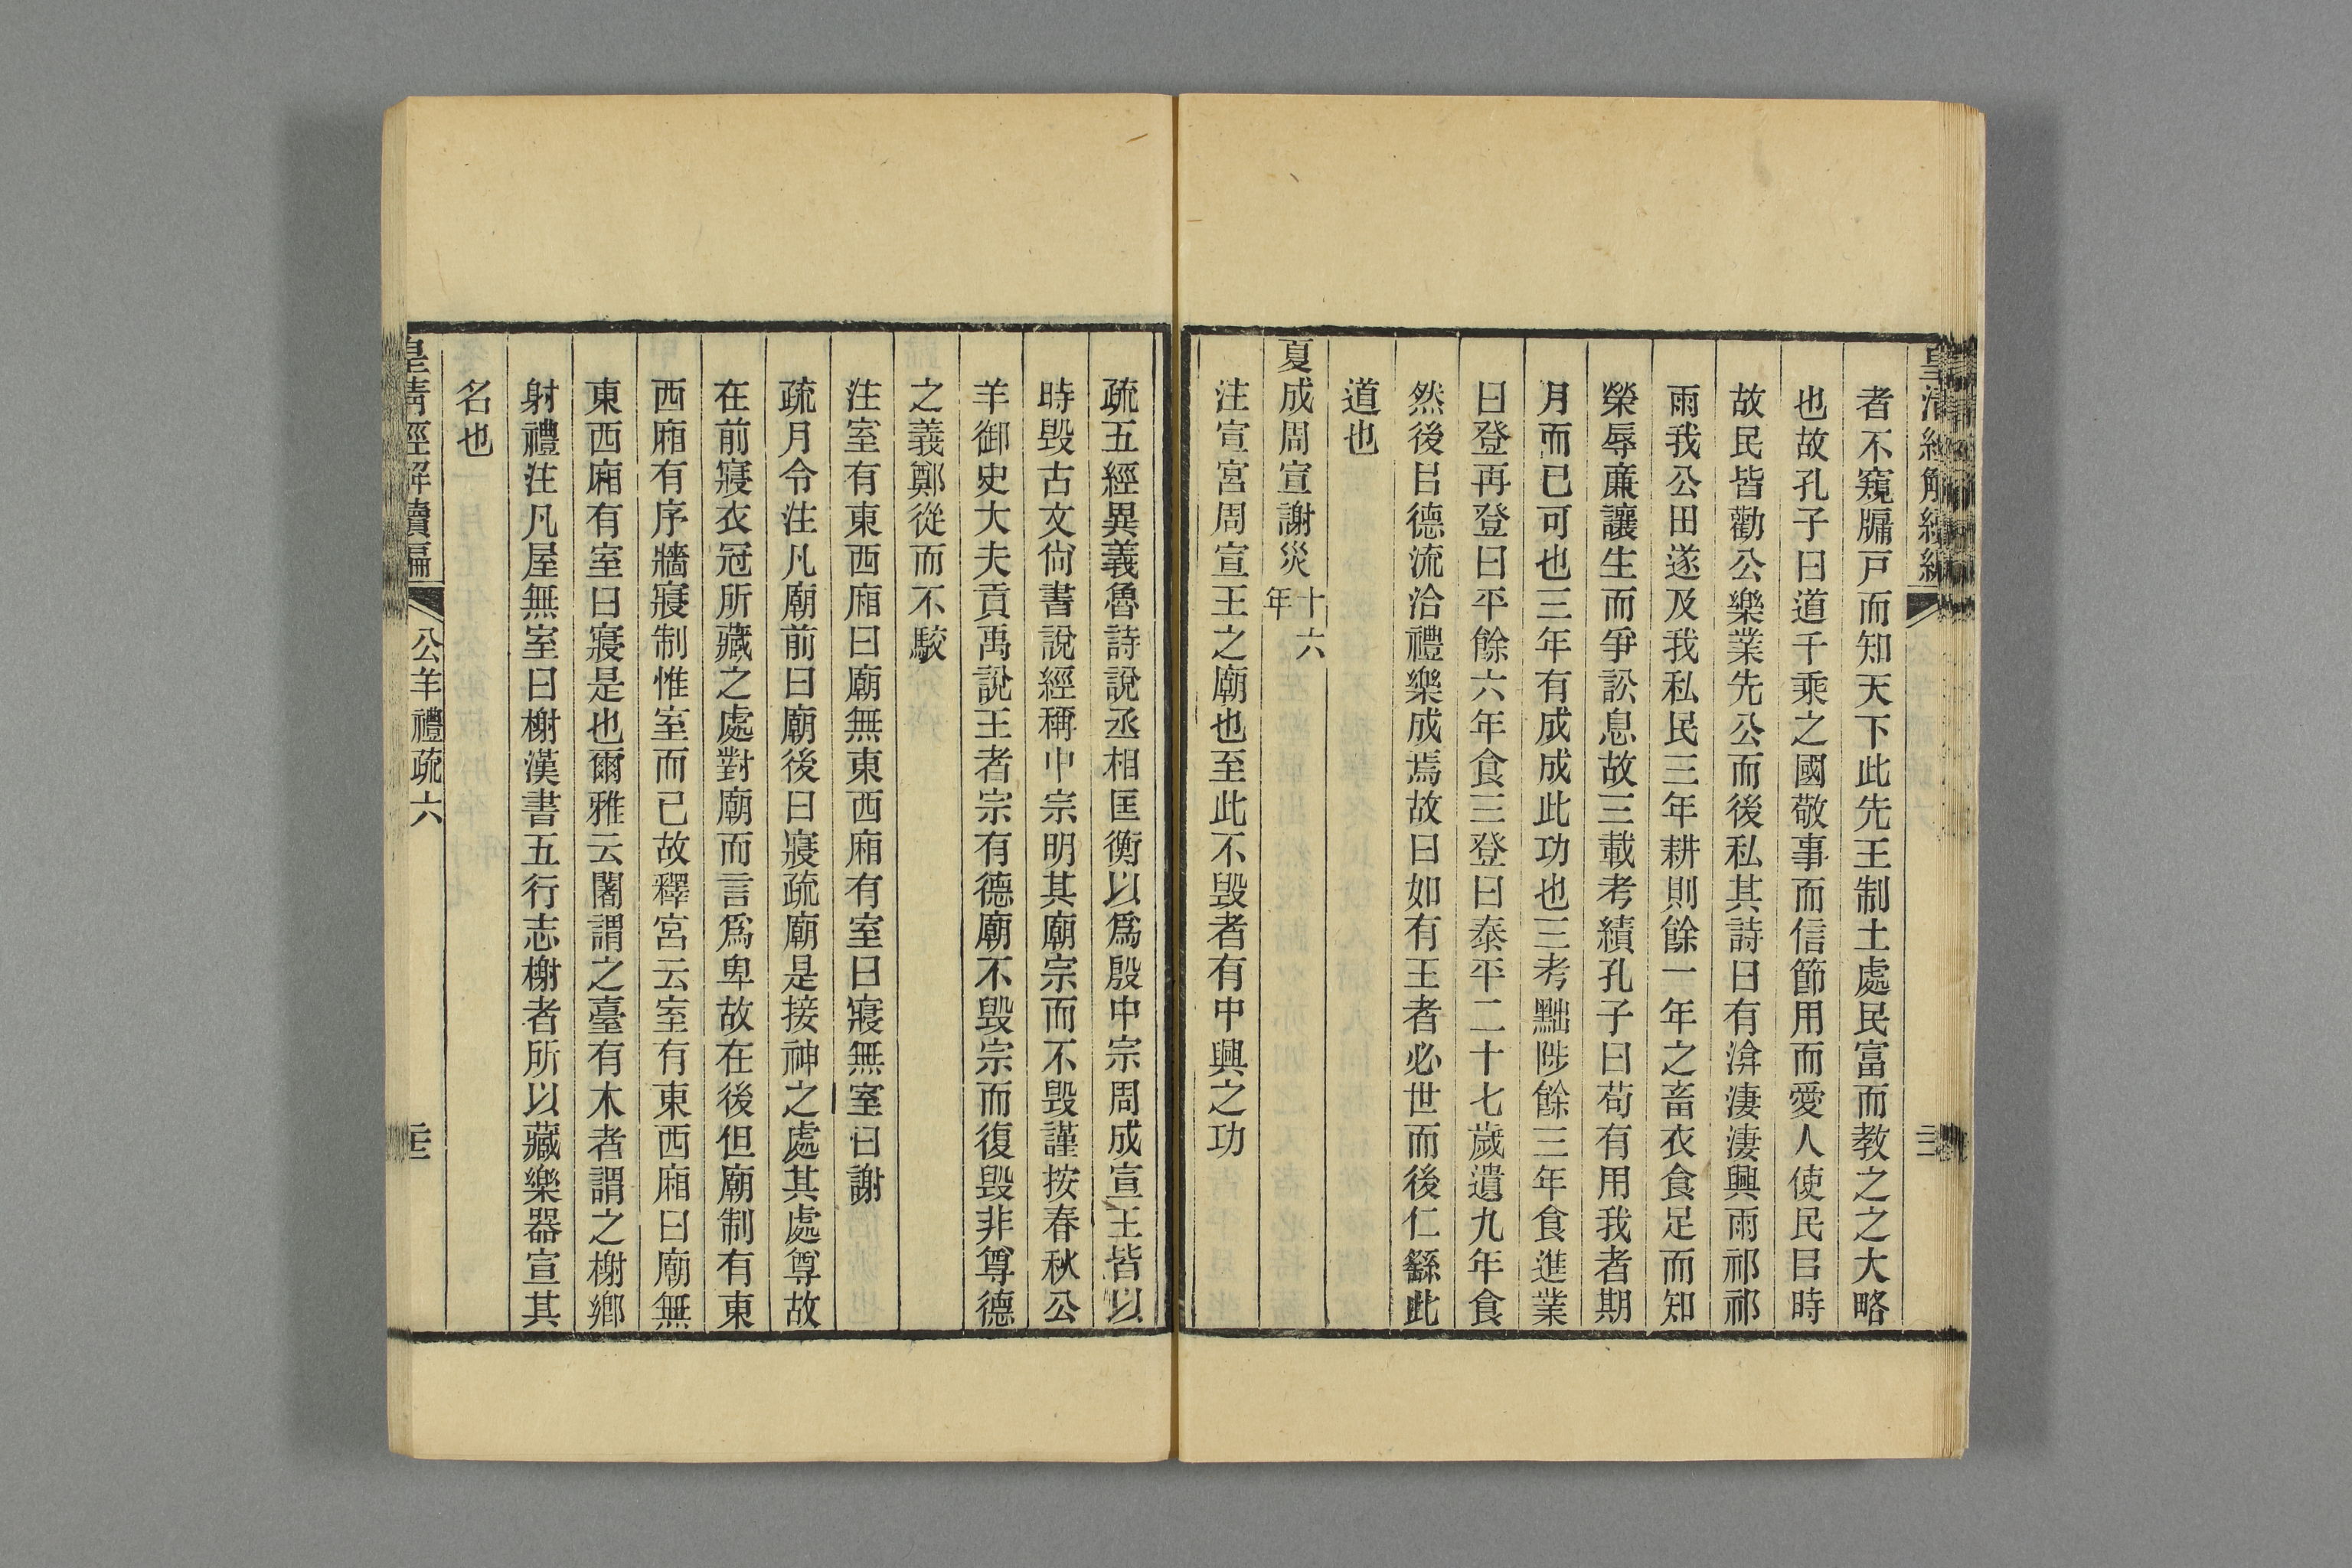 皇清經解續編
者不窺牖戸而知天下此先王制土處民富而教之之大略
也故孔子曰道千乘之國敬事而信節用而愛人使民㠯時
故民皆勸公樂業先公而後私其詩曰有渰淒淒興雨祁祁
雨我公田遂及我私民三年耕則餘一年之畜衣食足而知
榮辱廉讓生而爭訟息故三載考績孔子曰苟有用我者期
月而已可也三年有成成此功也三考黜陟餘三年食進業
曰登再登曰平餘六年食三登曰泰平二十七歲遺九年食
然後㠯德流洽禮樂成焉故曰如有王者必世而後仁繇此
道也
夏成周宣謝災十六年
注宣宮周宣王之廟也至此不毀者有中興之功
疏五經異義魯詩說丞相匡衡以爲殷中宗周成宣王皆以
時毀古文尙書說經稱中宗明其廟宗而不毀謹按春秋公
羊御史大夫貢禹說王者宗有德廟不毀宗而復毀非尊德
之義鄭從而不駮
注室有東西廂曰廟無東西廂有室曰寢無室曰謝
疏月令注凡廟前曰廟後曰寢疏廟是接神之處其處尊故
在前寢衣冠所藏之處對廟而言爲卑故在後但廟制有東
西廂有序牆寢制惟室而已故釋宮云室有東西廂曰廟無
東西廂有室曰寢是也爾雅云闍謂之臺有木者謂之榭鄉
射禮注凡屋無室曰榭漢書五行志榭者所以藏樂器宣其
名也
皇清經解續編 公羊禮疏六